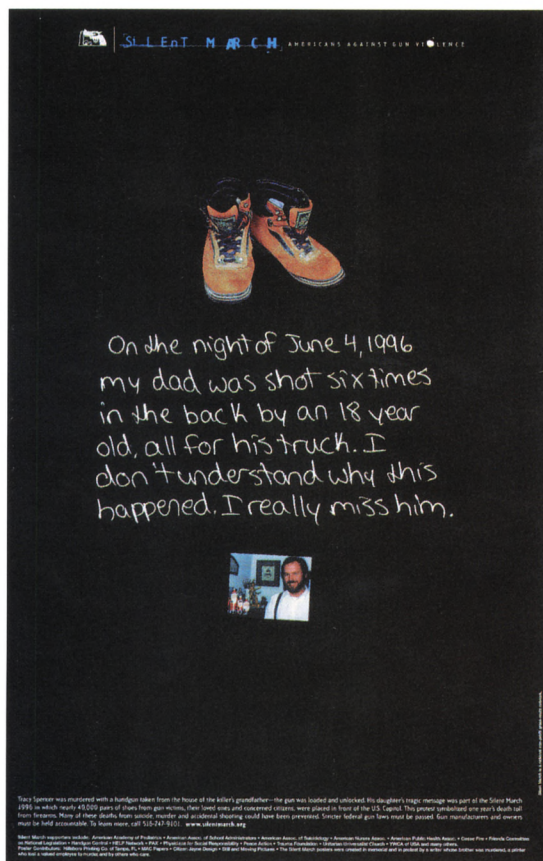 SiLEnT MARCH AMERICANS AGAINST GUN VIOLENCE
On the night of June 4, 1996
my dad was shot six times
in the back by an 18 year
old, all for his truck. I
don't understand why this
happened. I really miss him.
Tracy Spencer was murdered with a handgun taken from the house of the killer's grandfather—the gun was loaded and unlocked. His daughter's tragic message was part of the Silent March
1996 in which nearly 40,000 pairs of shoes from gun victims, their loved ones and concerned citizens, were placed in front of the U.S. Capitol. This protest symbolized one year's death toll
from firearms. Many of these deaths from suicide, murder and accidental shooting could have been prevented. Stricter federal gun laws must be passed. Gun manufacturers and owners
must be held accountable. To learn more, call 510-747-9101. www.silentmarch.org
Silent March supporters include: American Academy of Pediatrics • American Assoc. of School Administrators • American Assoc. of Suicidology • American Nurses Assoc. • American Public Health Assoc. • Cease Fire • Friends Committee
on National Legislation • Handgun Control • HELP Network • PAX • Physicians for Social Responsibility • Peace Action • Trauma Foundation • Unitarian Universalist Church • YWCA of USA and many others.
Poster Contributors: Hillsboro Printing Co. of Tampa, FL • MAC Papers • Citizen Jayne Design • Still and Moving Pictures • The Silent March posters were created in memorial and in protest by a writer whose brother was murdered, a printer
who lost a valued employee to murder, and by others who care.